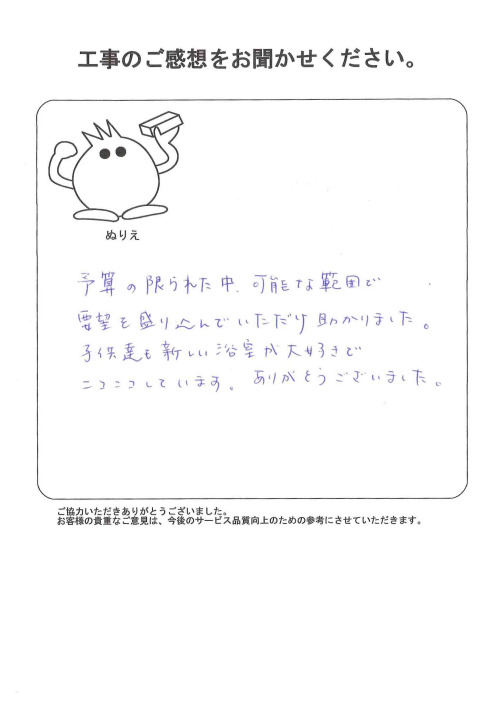 工事のご感想をお聞かせください。
ぬりえ
予算の限られた中、可能な範囲で
要望を盛り込んでいただけ助かりました。
子供達も新しい浴室が大好きで
ニコニコしています。ありがとうございました。
ご協力いただきありがとうございました。
お客様の貴重なご意見は、今後のサービス品質向上のための参考にさせていただきます。